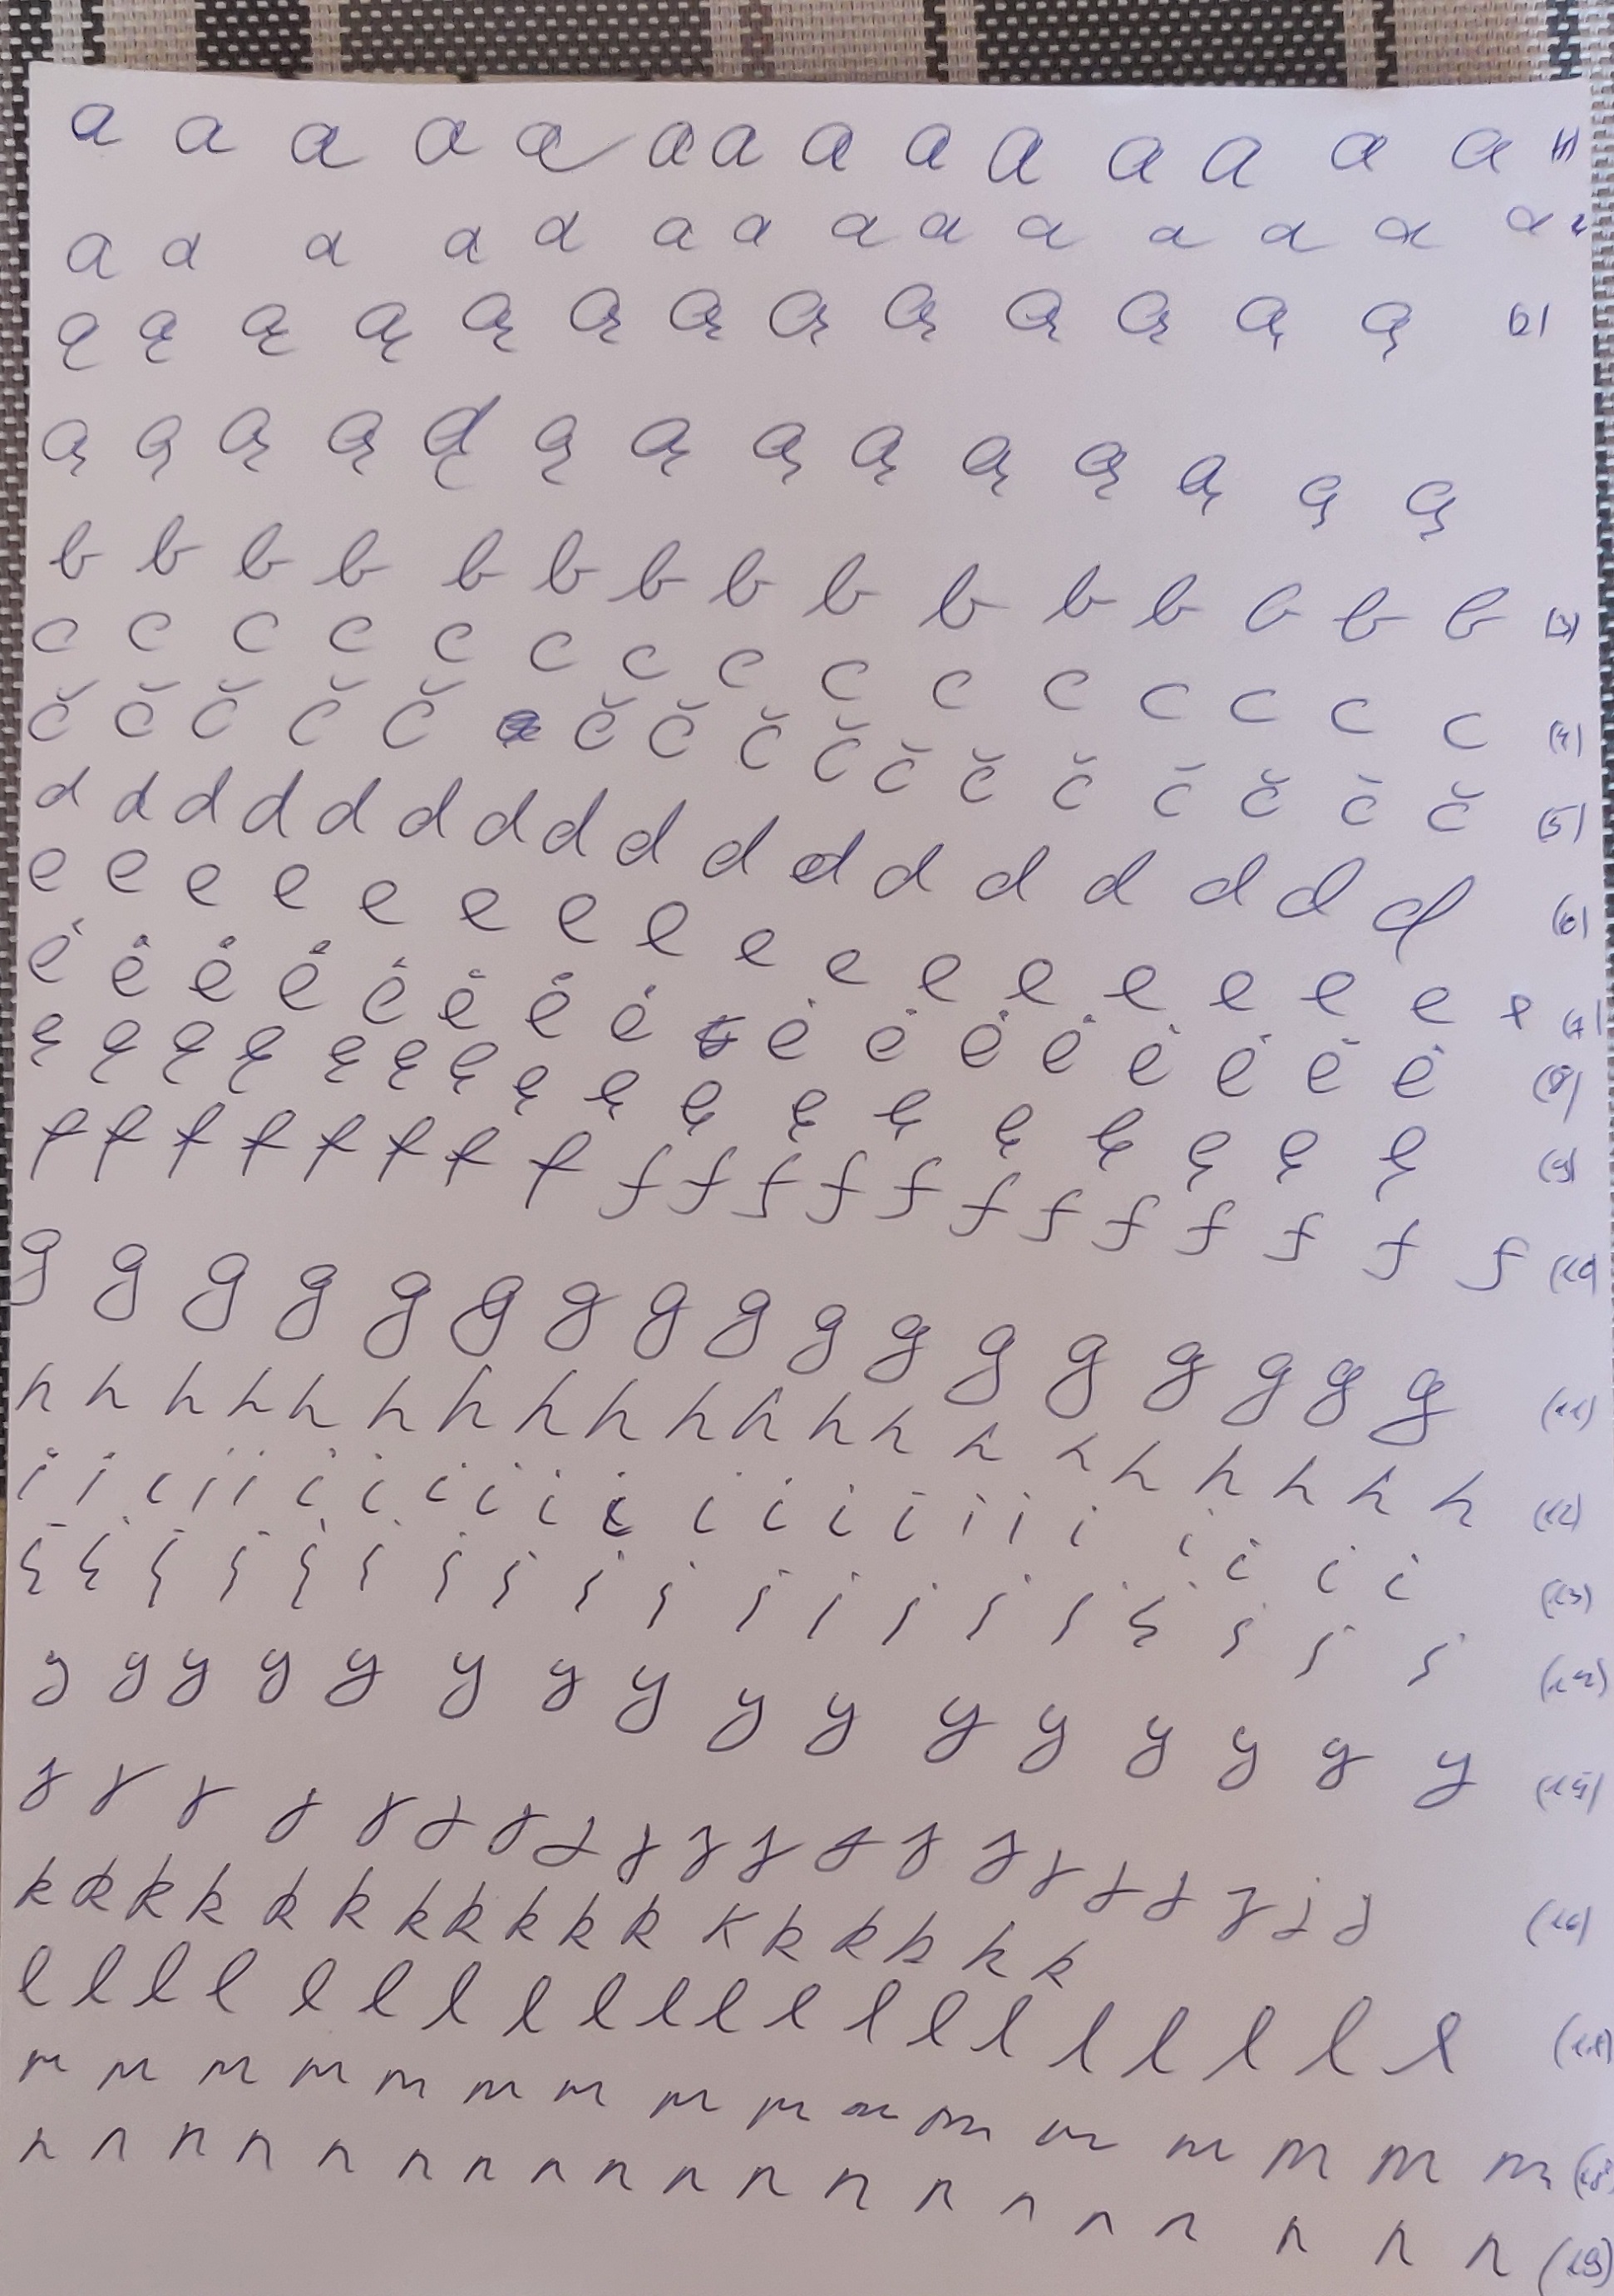 a a a a a a a a a a a a a a (1)
a a a a a a a a a a a a a a
ą ą ą ą ą ą ą ą ą ą ą ą ą (2)
ą ą ą ą ą ą ą ą ą ą ą ą ą ą
b b b b b b b b b b b b b b b (3)
c c c c c c c c c c c c c c c (4)
č č č č č č č č č č č č č č č č (5)
d d d d d d d d d d d d d d d d d (6)
e e e e e e e e e e e e e e e e e (7)
ė ė ė ė ė ė ė ė ė ė ė ė ė ė ė ė (8)
ę ę ę ę ę ę ę ę ę ę ę ę ę ę ę ę ę (9)
f f f f f f f f f f f f f f f f f f f f (10)
g g g g g g g g g g g g g g g g g (11)
h h h h h h h h h h h h h h h h h h h h (12)
i i i i i i i i i i i i i i i i i i i i i i (13)
į į į į į į į į į į į į į į į į į į į (14)
y y y y y y y y y y y y y y y y (15)
j j j j j j j j j j j j j j j j j j j j (16)
k k k k k k k k k k k k k k k k k
l l l l l l l l l l l l l l l l l l l l
m m m m m m m m m m m m m m m m (18)
n n n n n n n n n n n n n n n n n n n (19)